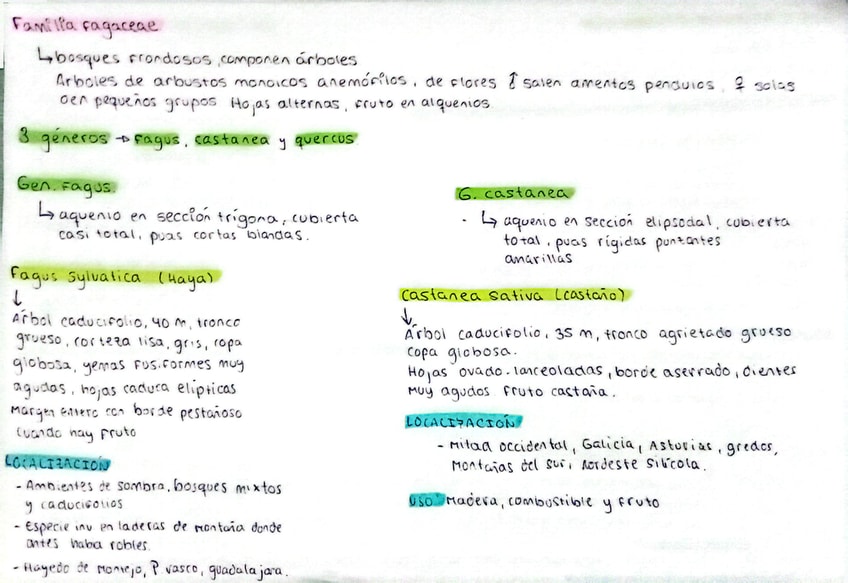 Familia fagaceae
↳ bosques frondosos, componen árboles
Arboles de arbustos monoicos anemófilos, de flores ♂ salen amentos pendulos, ♀ solas
o en pequeños grupos Hojas alternas, fruto en alquenios.
3 géneros → Fagus, castanea y quercus
Gen. Fagus.
↳ aquenio en sección trígona, cubierta
casi total, puas cortas blandas.
Fagus Sylvatica (Haya)
↓
Árbol caducifolio, 40 m, tronco
grueso, corteza lisa, gris, copa
globosa, yemas fusiformes muy
agudas, hojas caduca elípticas
Margen entero con borde pestañoso
cuando hay fruto
LOCALIZACIÓN
- Ambientes de sombra, bosques mixtos
y caducifolios
- Especie inv en laderas de montaña donde
antes haba robles.
- Hayedo de Montejo, P vasco, guadalajara.
G. castanea
- ↳ aquenio en sección elipsodal, cubierta
total, puas rígidas punzantes
amarillas
Castanea Sativa (castaño)
↓
Árbol caducifolio, 35 m, tronco agrietado grueso
copa globosa.
Hojas ovado-lanceoladas, borde aserrado, dientes
muy agudos fruto castaña.
LOCALIZACIÓN
- Mitad occidental, Galicia, Asturias, gredos,
Montañas del sur, nordeste silícola.
USO: Madera, combustible y fruto